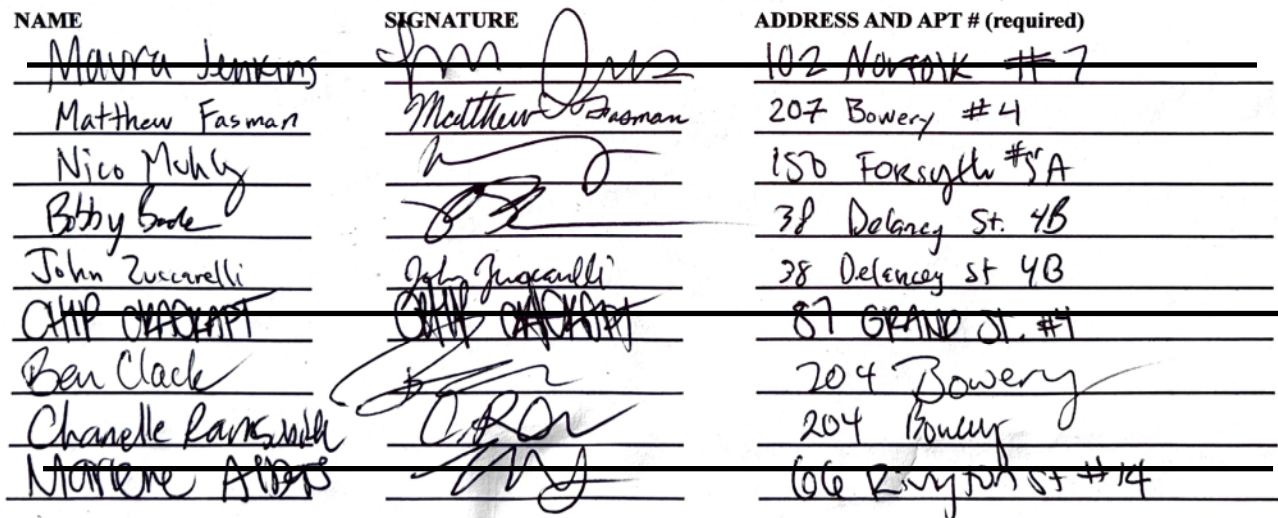 NAME SIGNATURE ADDRESS AND APT # (required)
Maura Jenkins 102 Norfolk #7
Matthew Fasman Matthew Fasman 207 Bowery #4
Nico Muhly 150 Forsyth #5A
Bobby 38 Delancy St. 4B
John Zuccarelli John Zuccarelli 38 Delancey St 4B
CHIP CHIP 87 GRAND ST. #4
Ben Clack 204 Bowery
Chanelle 204 Bowery
Marlene 66 Rivington St #14